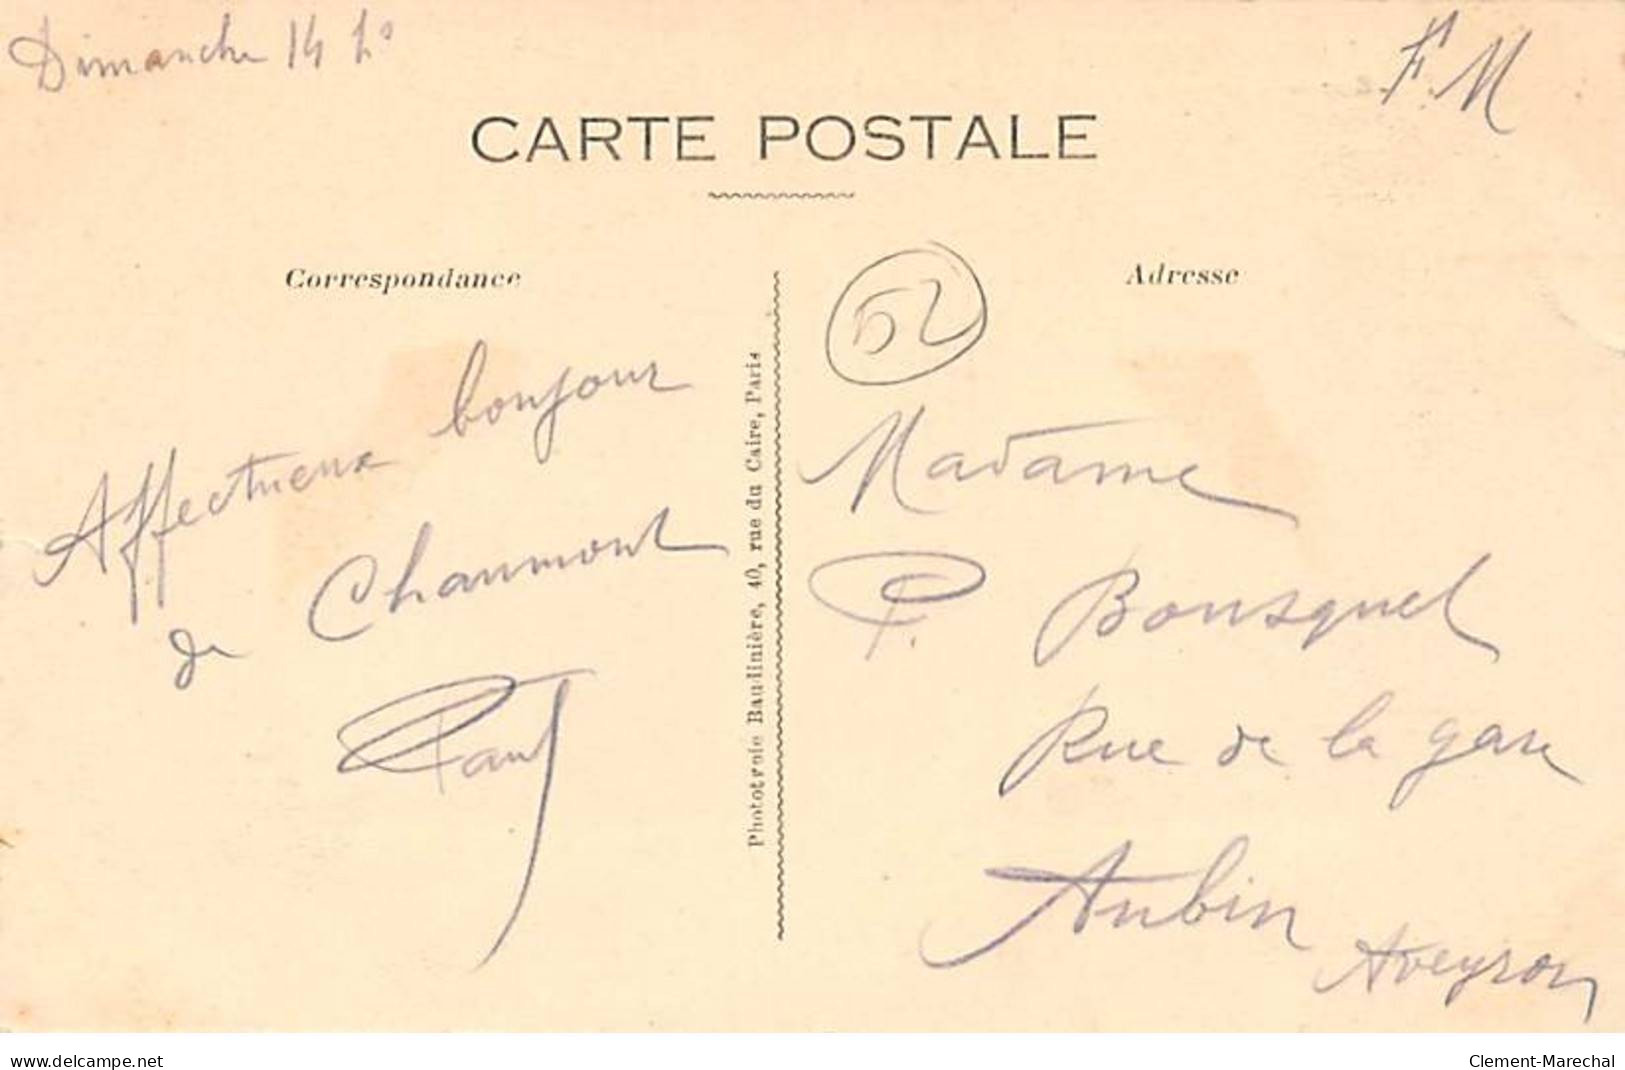 Dimanche 14 hs
F. M
CARTE POSTALE
Correspondance
Affectueux bonjour
de Chaumont
Paul
Phototypie Baudinière, 40, rue du Caire, Paris
Adresse
52
Madame
P. Bousquet
Rue de la gare
Aubin
Aveyron
www.delcampe.net
Clement-Marechal